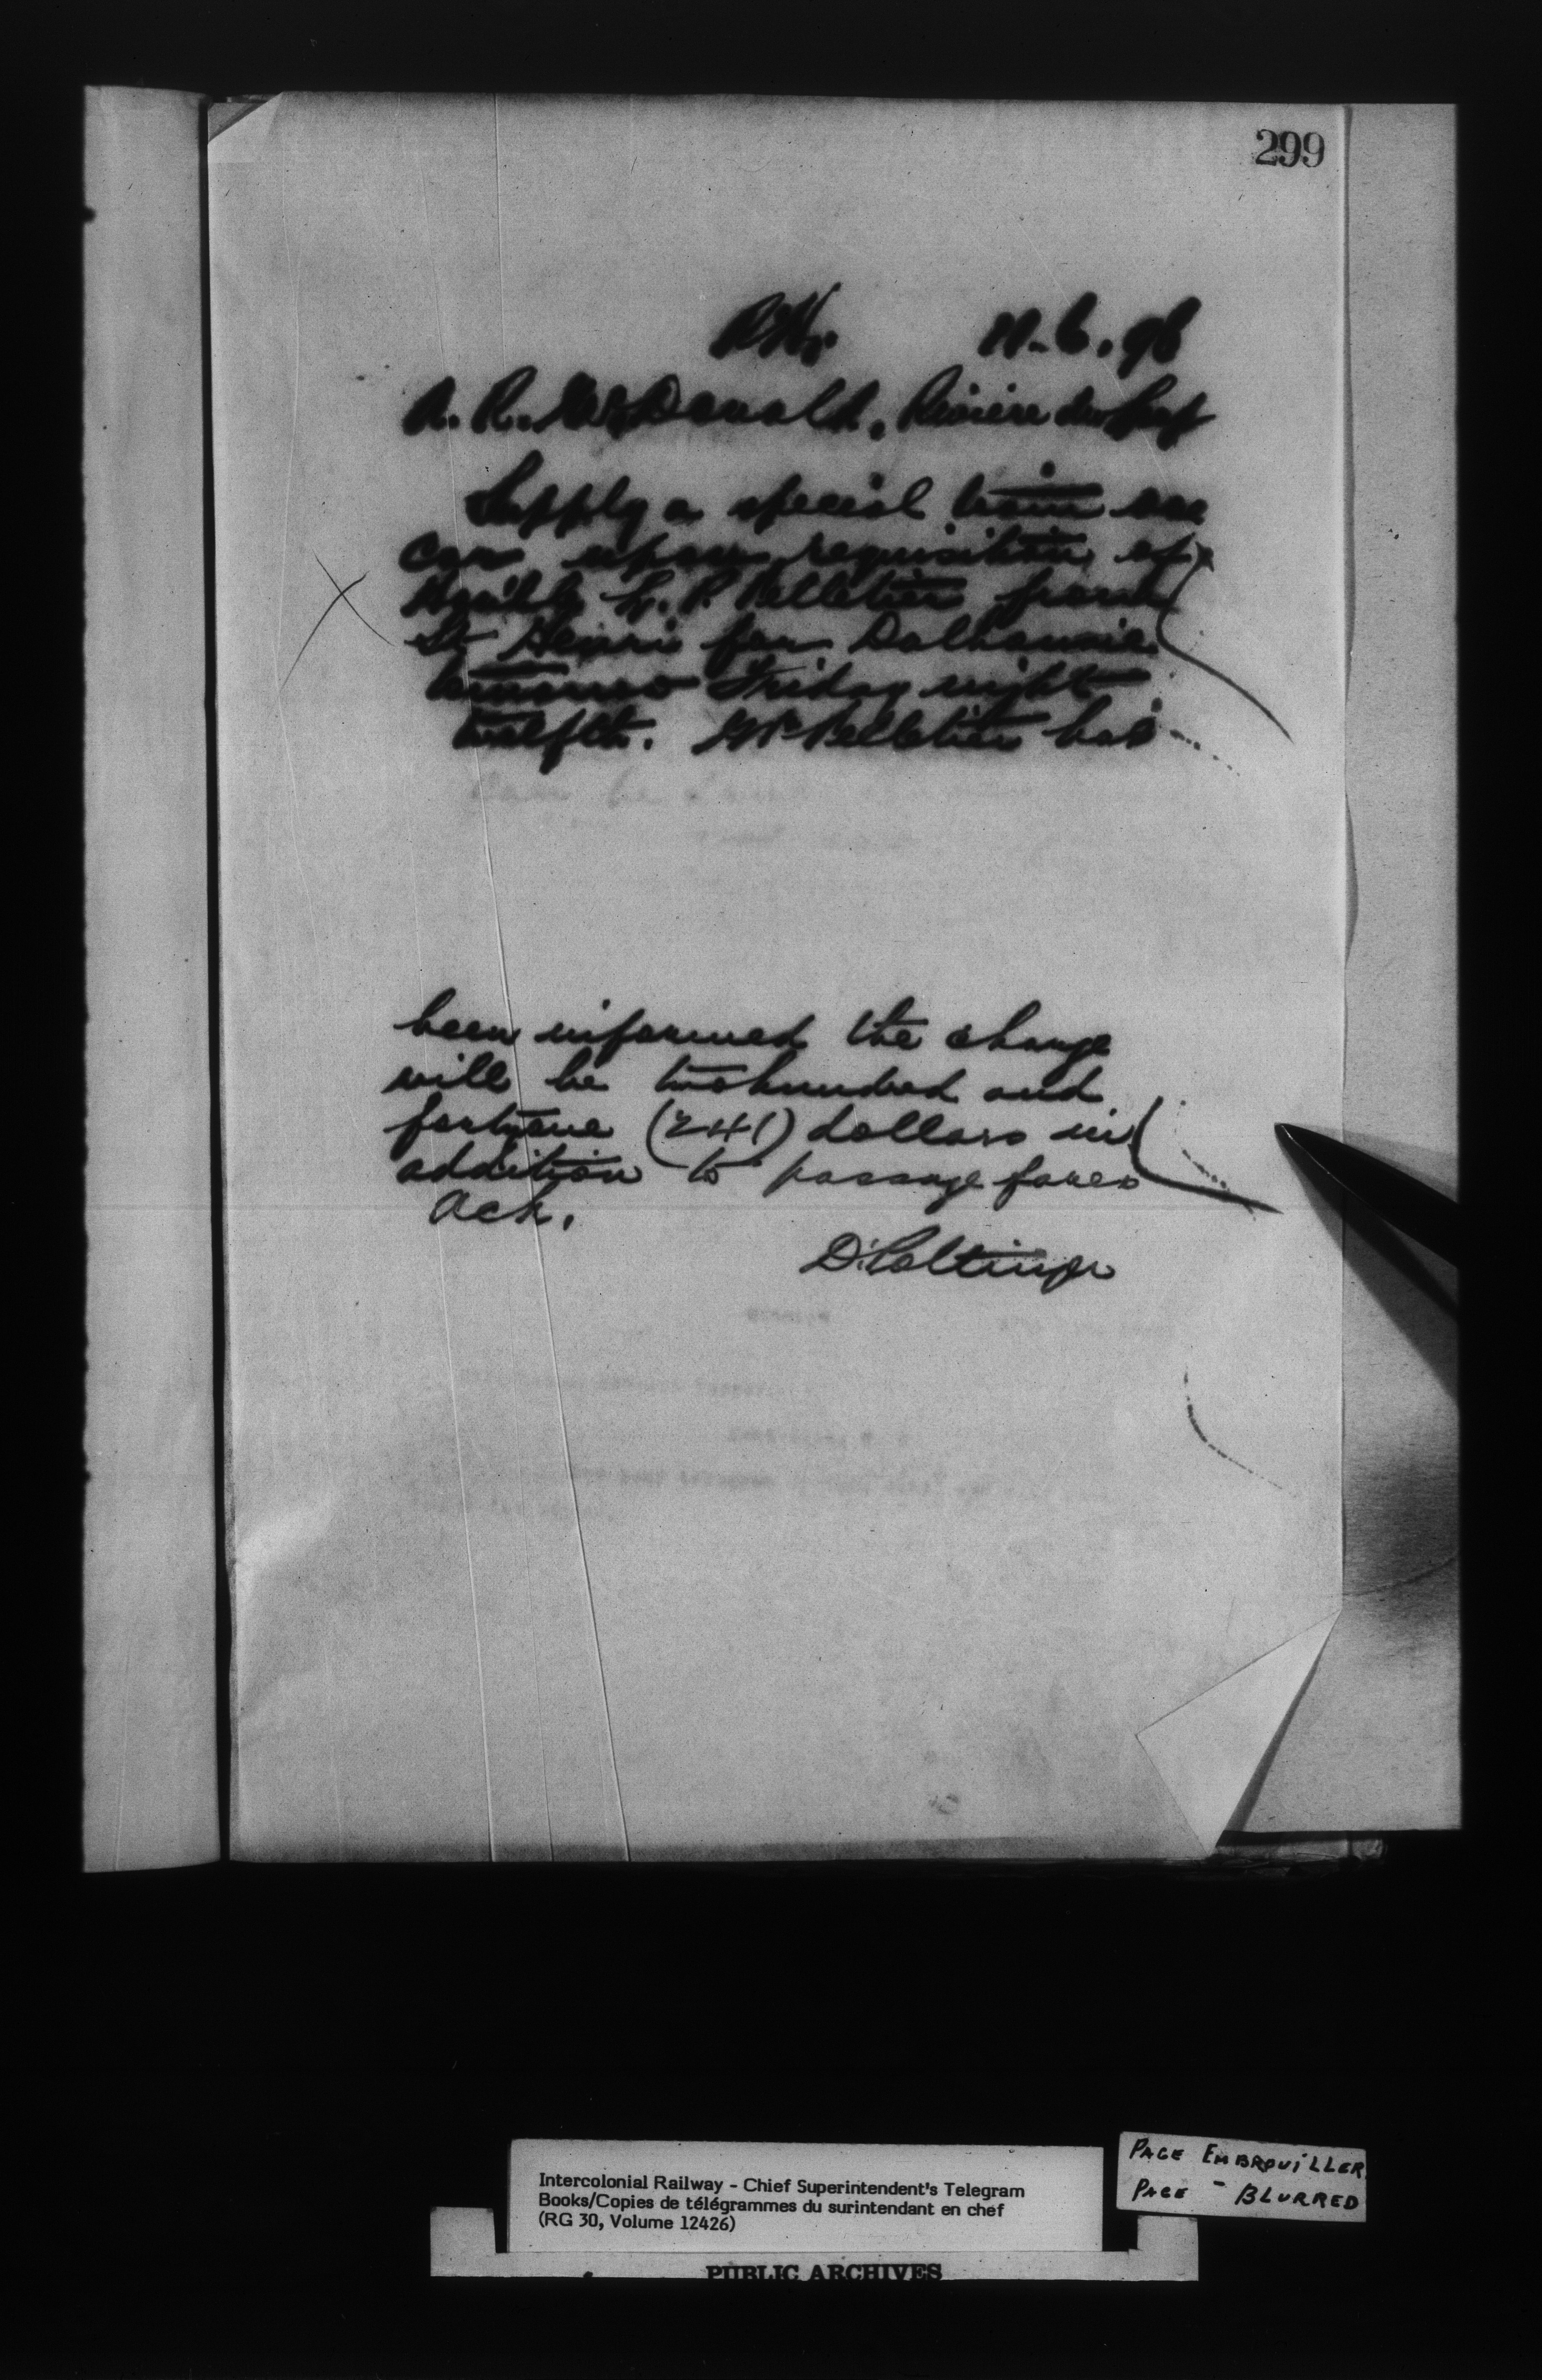 299
Ry. 11.6.96
A. R. McDonald, Riviere du Loup
Supply a special train one
car upon requisition of
Honble L. P. Pelletier from
St Henri for Dalhousie
tomorrow Friday night
twelfth. Mr Pelletier has
been informed the charge
will be twohundred and
fortyone (241) dollars in
addition to passage fares
Ack.
D. Pottinger
Intercolonial Railway - Chief Superintendent's Telegram
Books/Copies de télégrammes du surintendant en chef
(RG 30, Volume 12426)
PAGE EMBROUILLER
PAGE - BLURRED
PUBLIC ARCHIVES